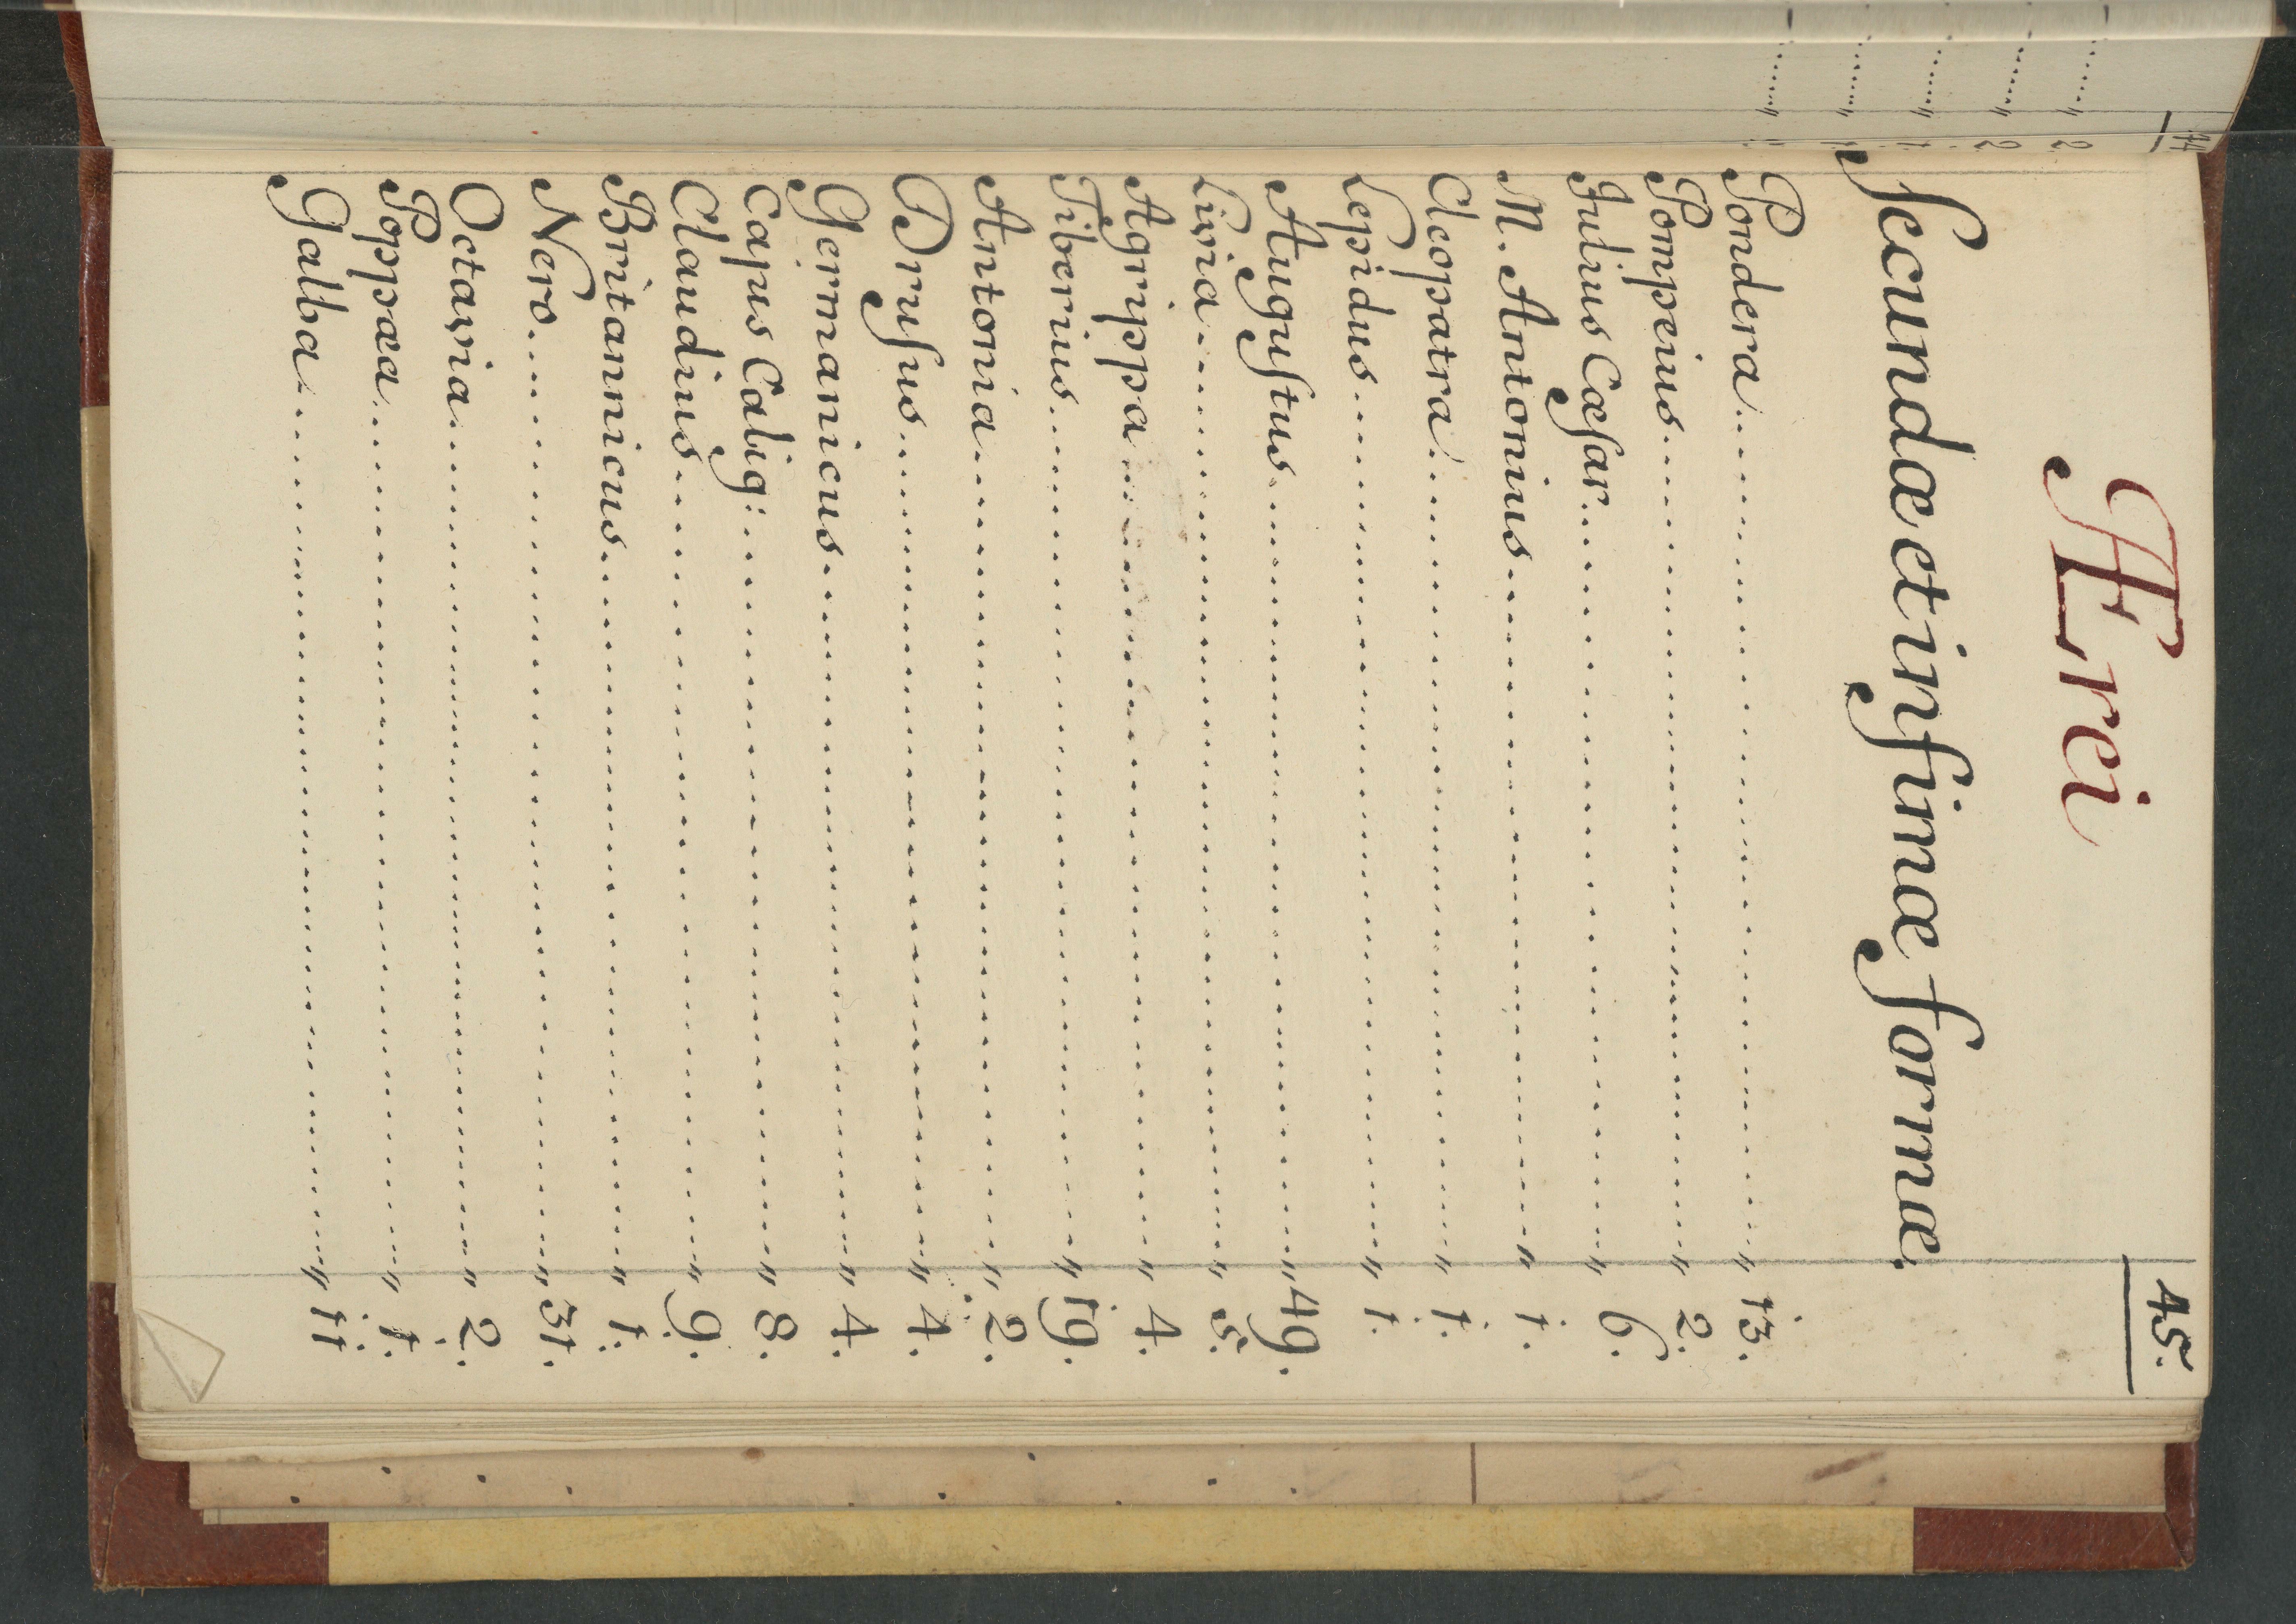 45.
Ærei
Secundæ et infimæ formæ.
Pondera ........ " 13.
Pompeius ........ " 2.
Julius Cæsar ........ " 6.
M. Antonius ........ " 1.
Cleopatra ........ " 1.
Lepidus ........ " 1.
Augustus ........ " 49.
Livia ........ " 5.
Agrippa ........ " 4.
Tiberius ........ " 19.
Antonia ........ " 2.
Drusus ........ " 4.
Germanicus ........ " 4.
Cajus Calig: ........ " 8.
Claudius ........ " 9.
Britannicus ........ " 1.
Nero ........ " 31.
Octavia ........ " 2.
Poppæa ........ " 1.
Galba ........ " 11